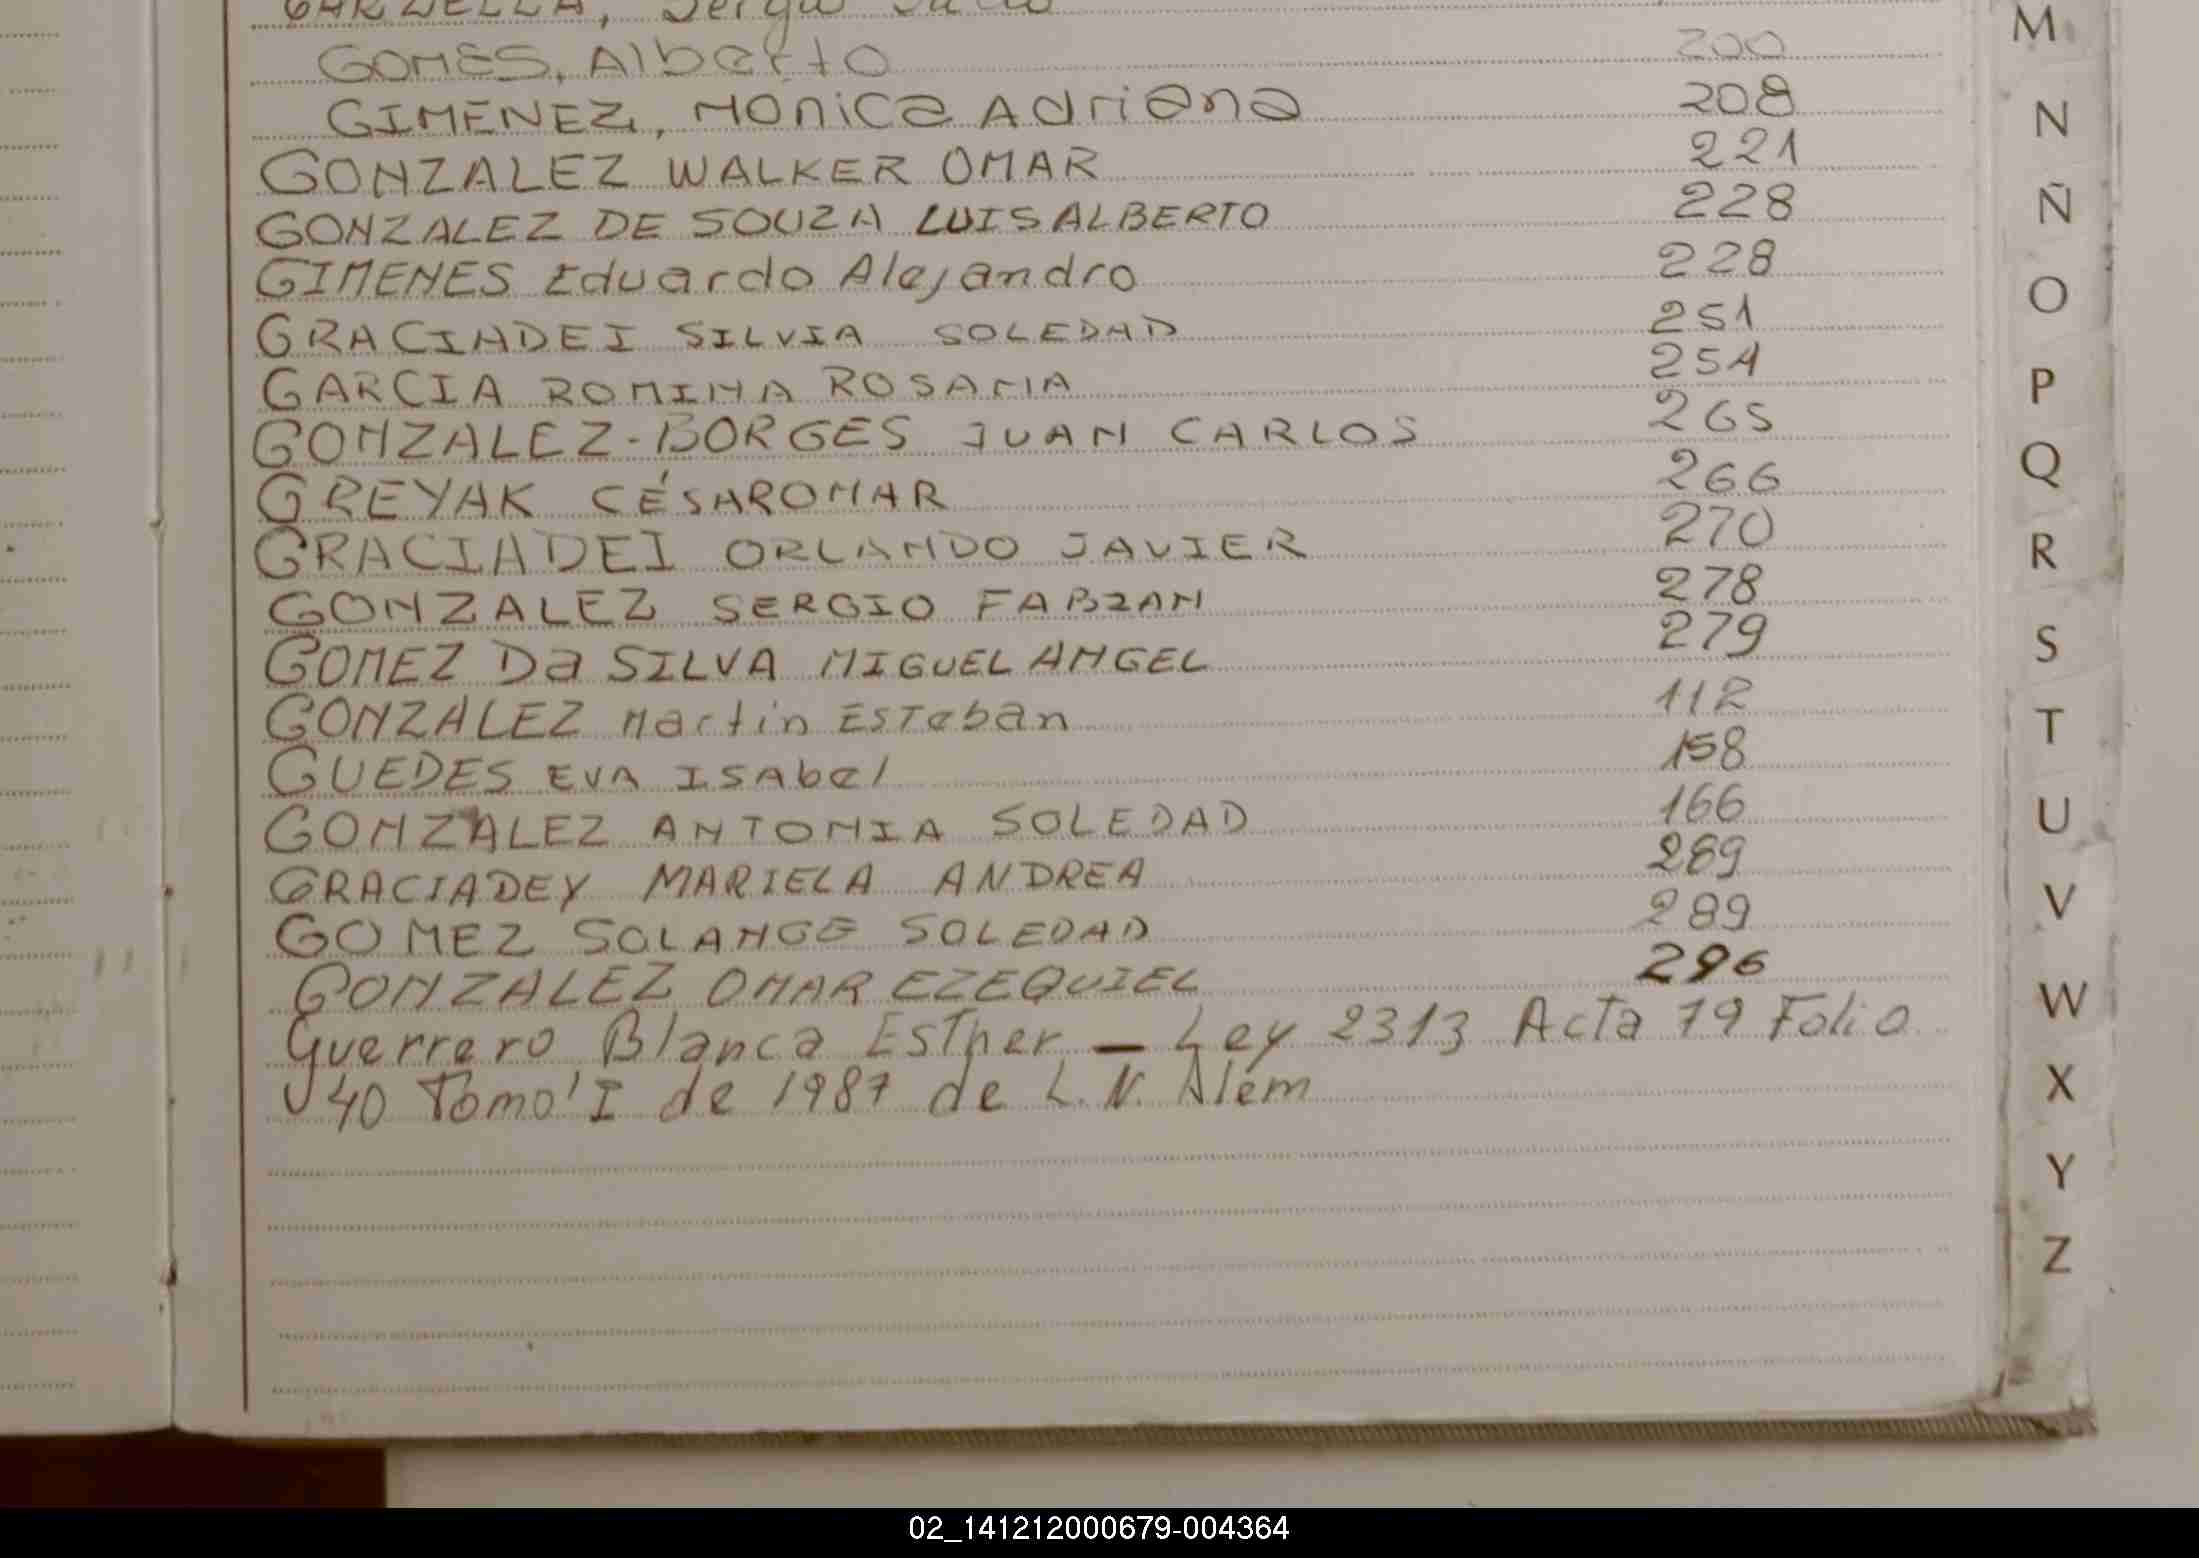 GOMES, Alberto 200
GIMENEZ, Monica Adriana 208
GONZALEZ WALKER OMAR 221
GONZALEZ DE SOUZA LUIS ALBERTO 228
GIMENES Eduardo Alejandro 228
GRACIADEI SILVIA SOLEDAD 251
GARCIA ROMINA ROSANA 251
GONZALEZ-BORGES JUAN CARLOS 265
GREYAK CÉSAR OMAR 266
GRACIADEI ORLANDO JAVIER 270
GONZALEZ SERGIO FABIAN 278
GOMEZ Da SILVA MIGUEL ANGEL 279
GONZALEZ Martin ESTeban 112
GUEDES EVA ISAbel 158
GONZALEZ ANTONIA SOLEDAD 166
GRACIADEY MARIELA ANDREA 289
GOMEZ SOLANGE SOLEDAD 289
GONZALEZ OMAR EZEQUIEL 296
Guerrero Blanca Esther - Ley 2313 Acta 79 Folio
40 Tomo I de 1987 de L. N. Alem
M
N
Ñ
O
P
Q
R
S
T
U
V
W
X
Y
Z
02_141212000679-004364